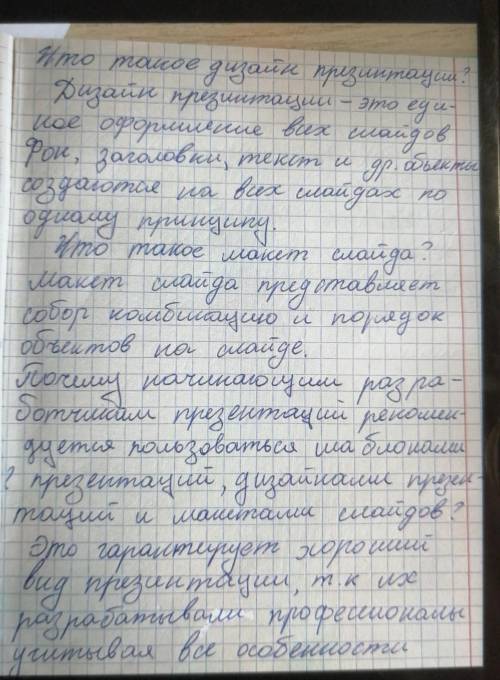 Что такое дизайн презинтации?
Дизайн презинтации - это еди-
ное оформление всех слайдов
Фон, заголовки, текст и др. объекты
создаются на всех слайдах по
одному принципу.
Что такое макет слайда?
Макет слайда представляет
собор комбинацию и порядок
объектов на слайде.
Почему начинающим разра-
ботчикам презентаций рекомен-
дуется пользоваться шаблонами
? презентаций, дизайнами презен-
таций и макетами слайдов?
Это гарантирует хороший
вид презинтации, т.к их
разрабатывали професионалы
учитывая все особенности